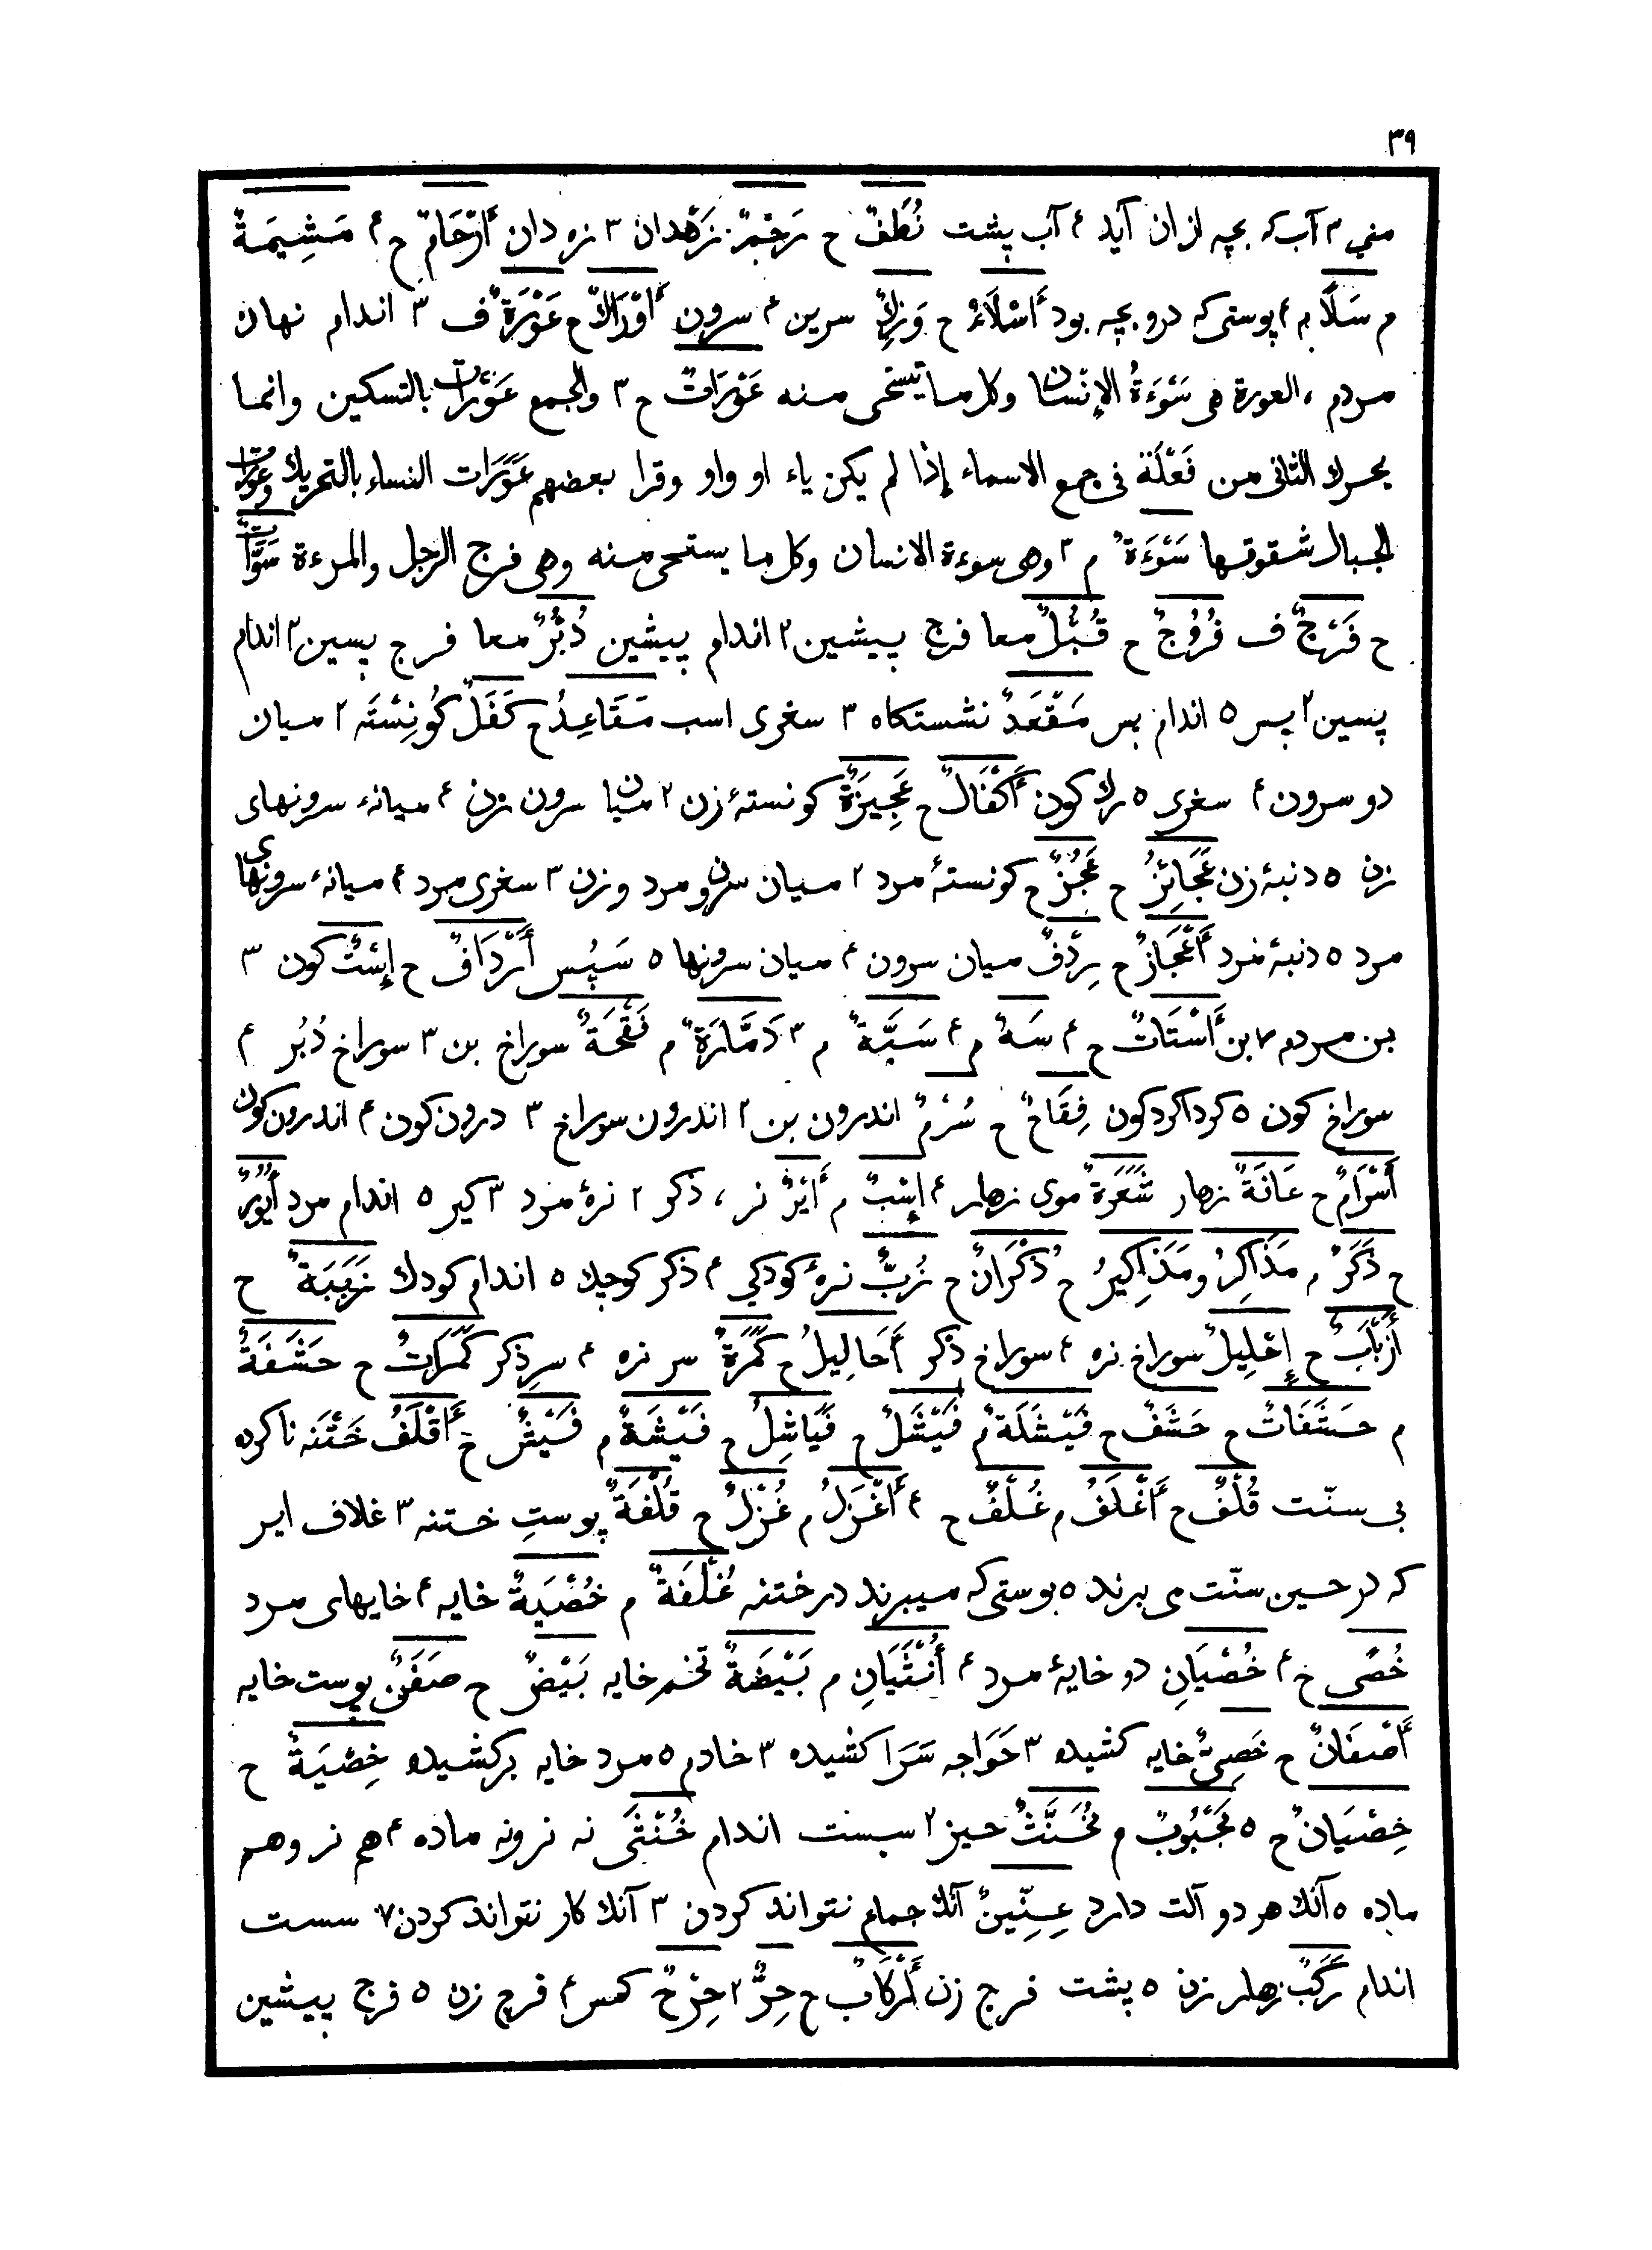 ٣٩
منی ٣ آب که بچه ازان آید ۴ آب پشت نُطَفٌ ح رَحْمٌ زَهْدان ٣ زه دان أَرْحَامٌ ح ۴ مَشِیمَةٌ
م سَلًا م ۴ پوستی که درو بچه بود أَسْلَاءٌ ح وَرِكٌ سرین ۴ سرون أَوْرَاكٌ ح عَوْرَةٌ ف ٣ اندام نهان
مردم ، العورة هی سَوْءَةُ الإنْسان وکل ما یستحی منه عَوْرَاتٌ ح ٣ والجمع عَوْرَات بالتسکین وانما
یحرك الثانی من فَعْلَة فی جمع الاسماء إذا لم یکن یاء او واو وقرا بعضهم عَوَرَات النساء بالتحریك وعورات
الجبال شقوقها سَوْءَةٌ م ٣ وهی سوءة الانسان وکل ما یستحی منه وهی فرج الرجل والمرءة سَوْآتٌ
ح فَرْجٌ ف فُرُوجٌ ح قُبُلٌ معا فرج پیشین ٢ اندام پیشین دُبُرٌ معا فرج پسین ٢ اندام
پسین ٢ پس ۵ اندام پس مَقْعَدٌ نشستکاه ٣ سغری اسب مَقَاعِدُ ح کَفَلٌ کُونِسْتَه ٢ میان
دو سرون ۴ سغری ۵ رك کون أَکْفَالٌ ح عَجِیزَةٌ کونستهٔ زن ٢ میان سرون زن ۴ میانهٔ سرونهای
زن ۵ دنبهٔ زن عَجَائِزُ ح عَجُزٌ ح کونستهٔ مرد ٢ میان سرون مرد و زن ٣ سغری مرد ۴ میانهٔ سرونهای
مرد ۵ دنبهٔ مرد أَعْجَازٌ ح رِدْفٌ میان سرون ۴ میان سرونها ۵ سَپُس أَرْدَافٌ ح إِسْتٌ کون ٣
بن مردم ٧ بن أَسْتَاتٌ ح ۴ سَهٌ م ۴ سَبَّةٌ م ٣ دَمَّارَةٌ م فَقْحَةٌ سوراخ بن ٣ سوراخ دُبُر ۴
سوراخ کون ۵ کرداکرد کون فِقَاحٌ ح سُرْمٌ اندرون بن ٢ اندرون سوراخ ٣ درون کون ۴ اندرون کون
أَسْرَامٌ ح عَانَةٌ زهار شَعَرَةٌ موی زهار ۴ إِسْبٌ م أَیْرٌ نر ، ذکر ٢ نرهٔ مرد ٣ کیر ۵ اندام مرد أُیُورٌ
ح ذَکَرٌ م مَذَاکِرُ و مَذَاکِیرُ ح ذُکْرَانٌ ح زُبٌّ نرهٔ کودکی ۴ ذکر کوچك ۵ اندام کودك زَبَبَةٌ ح
أَزْبَابٌ ح إِحْلِیلٌ سوراخ نره ۴ سوراخ ذکر أَحَالِیلُ ح کَمَرَةٌ سر نره ۴ سرِ ذکر کَمَرَاتٌ ح حَشَفَةٌ
م حَشَفَاتٌ ح حَشَفٌ ح فَیْشَلَةٌ م فَیْشَلٌ ح فَیَاشِلُ ح فَیْشَةٌ م فَیْشٌ ح أَقْلَفُ خَتْنَه ناکرده
بی سنّت قُلْفٌ ح أَغْلَفُ م غُلْفٌ ح ۴ أَغْرَلُ م غُرْلٌ ح قُلْفَةٌ پوستِ ختنه ٣ غلاف ایر
که در حین سنّت می برند ۵ بوستی که میبرند در ختنه غُلْفَةٌ م خُصْیَةٌ خایه ۴ خایهای مرد
خُصًی ح ۴ خُصْیَانِ دو خایهٔ مرد ۴ أُنْثَیَانِ م بَیْضَةٌ تخم خایه بَیْضٌ ح صَفَنٌ پوست خایه
أَصْفَانٌ ح خَصِیٌّ خایه کشیده ٣ خَوَاجه سَرَا کشیده ٣ خادم ۵ مرد خایه برکشیده خِصْیَةٌ ح
خِصْیَانٌ ح ۵ مَجْبُوبٌ م مُخَنَّثٌ حیز ٢ سست اندام خُنْثَی نه نر ونه ماده ۴ هم نر و هم
ماده ۵ آنك هر دو آلت دارد عِنِّینٌ آنك جماع نتواند کردن ٣ آنك کار نتواند کردن ٧ سست
اندام رَکَبٌ زهار زن ۵ پشت فرج زن أَرْکَابٌ ح حِرٌّ ٢ حِرْحٌ کس ۴ فرج زن ۵ فرج پیشین